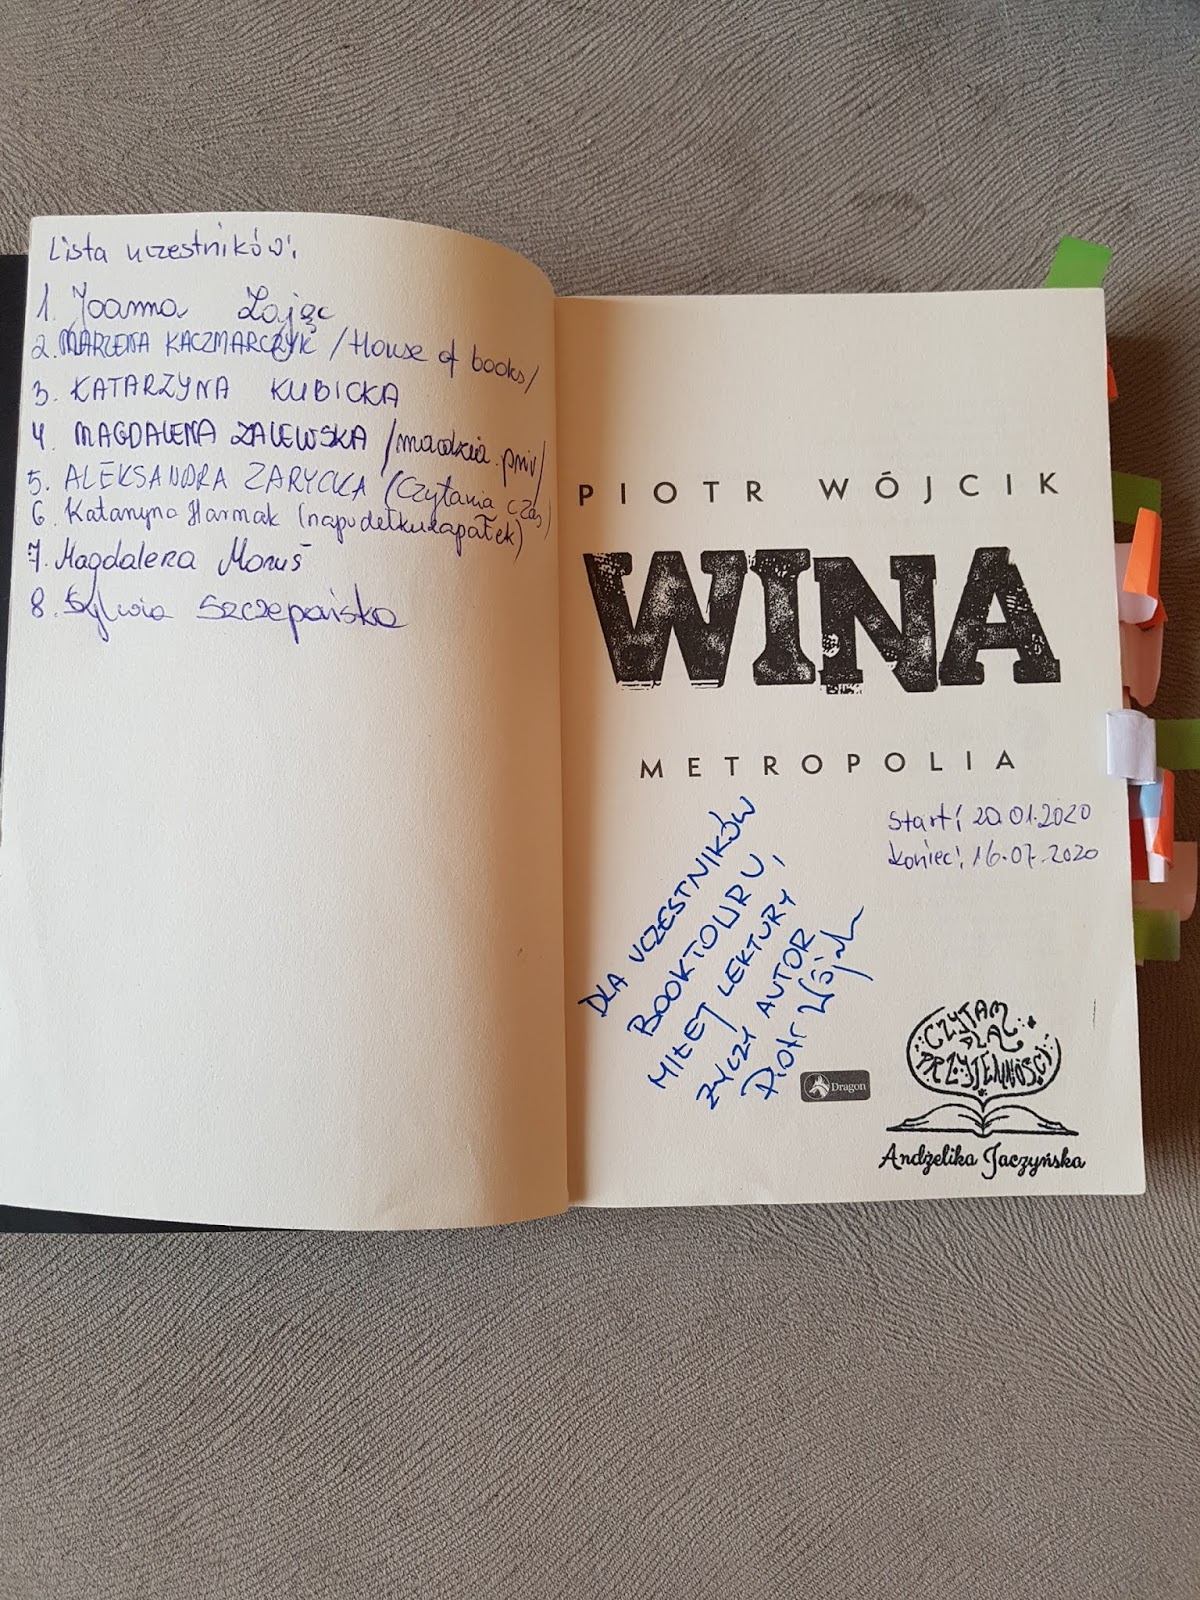 Lista uczestników:
1. Joanna Zając
2. MARZENA KACZMARCZYK /House of books/
3. KATARZYNA KUBICKA
4. MAGDALENA ZALEWSKA
5. ALEKSANDRA ZARYCKA (Czytania czas)
6. Katarzyna Harmak (napudelkuzapałek)
7. Magdalena
8. Sylwia Szczepańska
PIOTR WÓJCIK
WINA
METROPOLIA
Start: 20.01.2020
koniec: 16.07.2020
DLA UCZESTNIKÓW
BOOKTOURU,
MIŁEJ LEKTURY
ŻYCZY AUTOR
Piotr Wójcik
Dragon
CZYTAM
DLA
PRZYJEMNOŚCI
Andżelika Jaczyńska